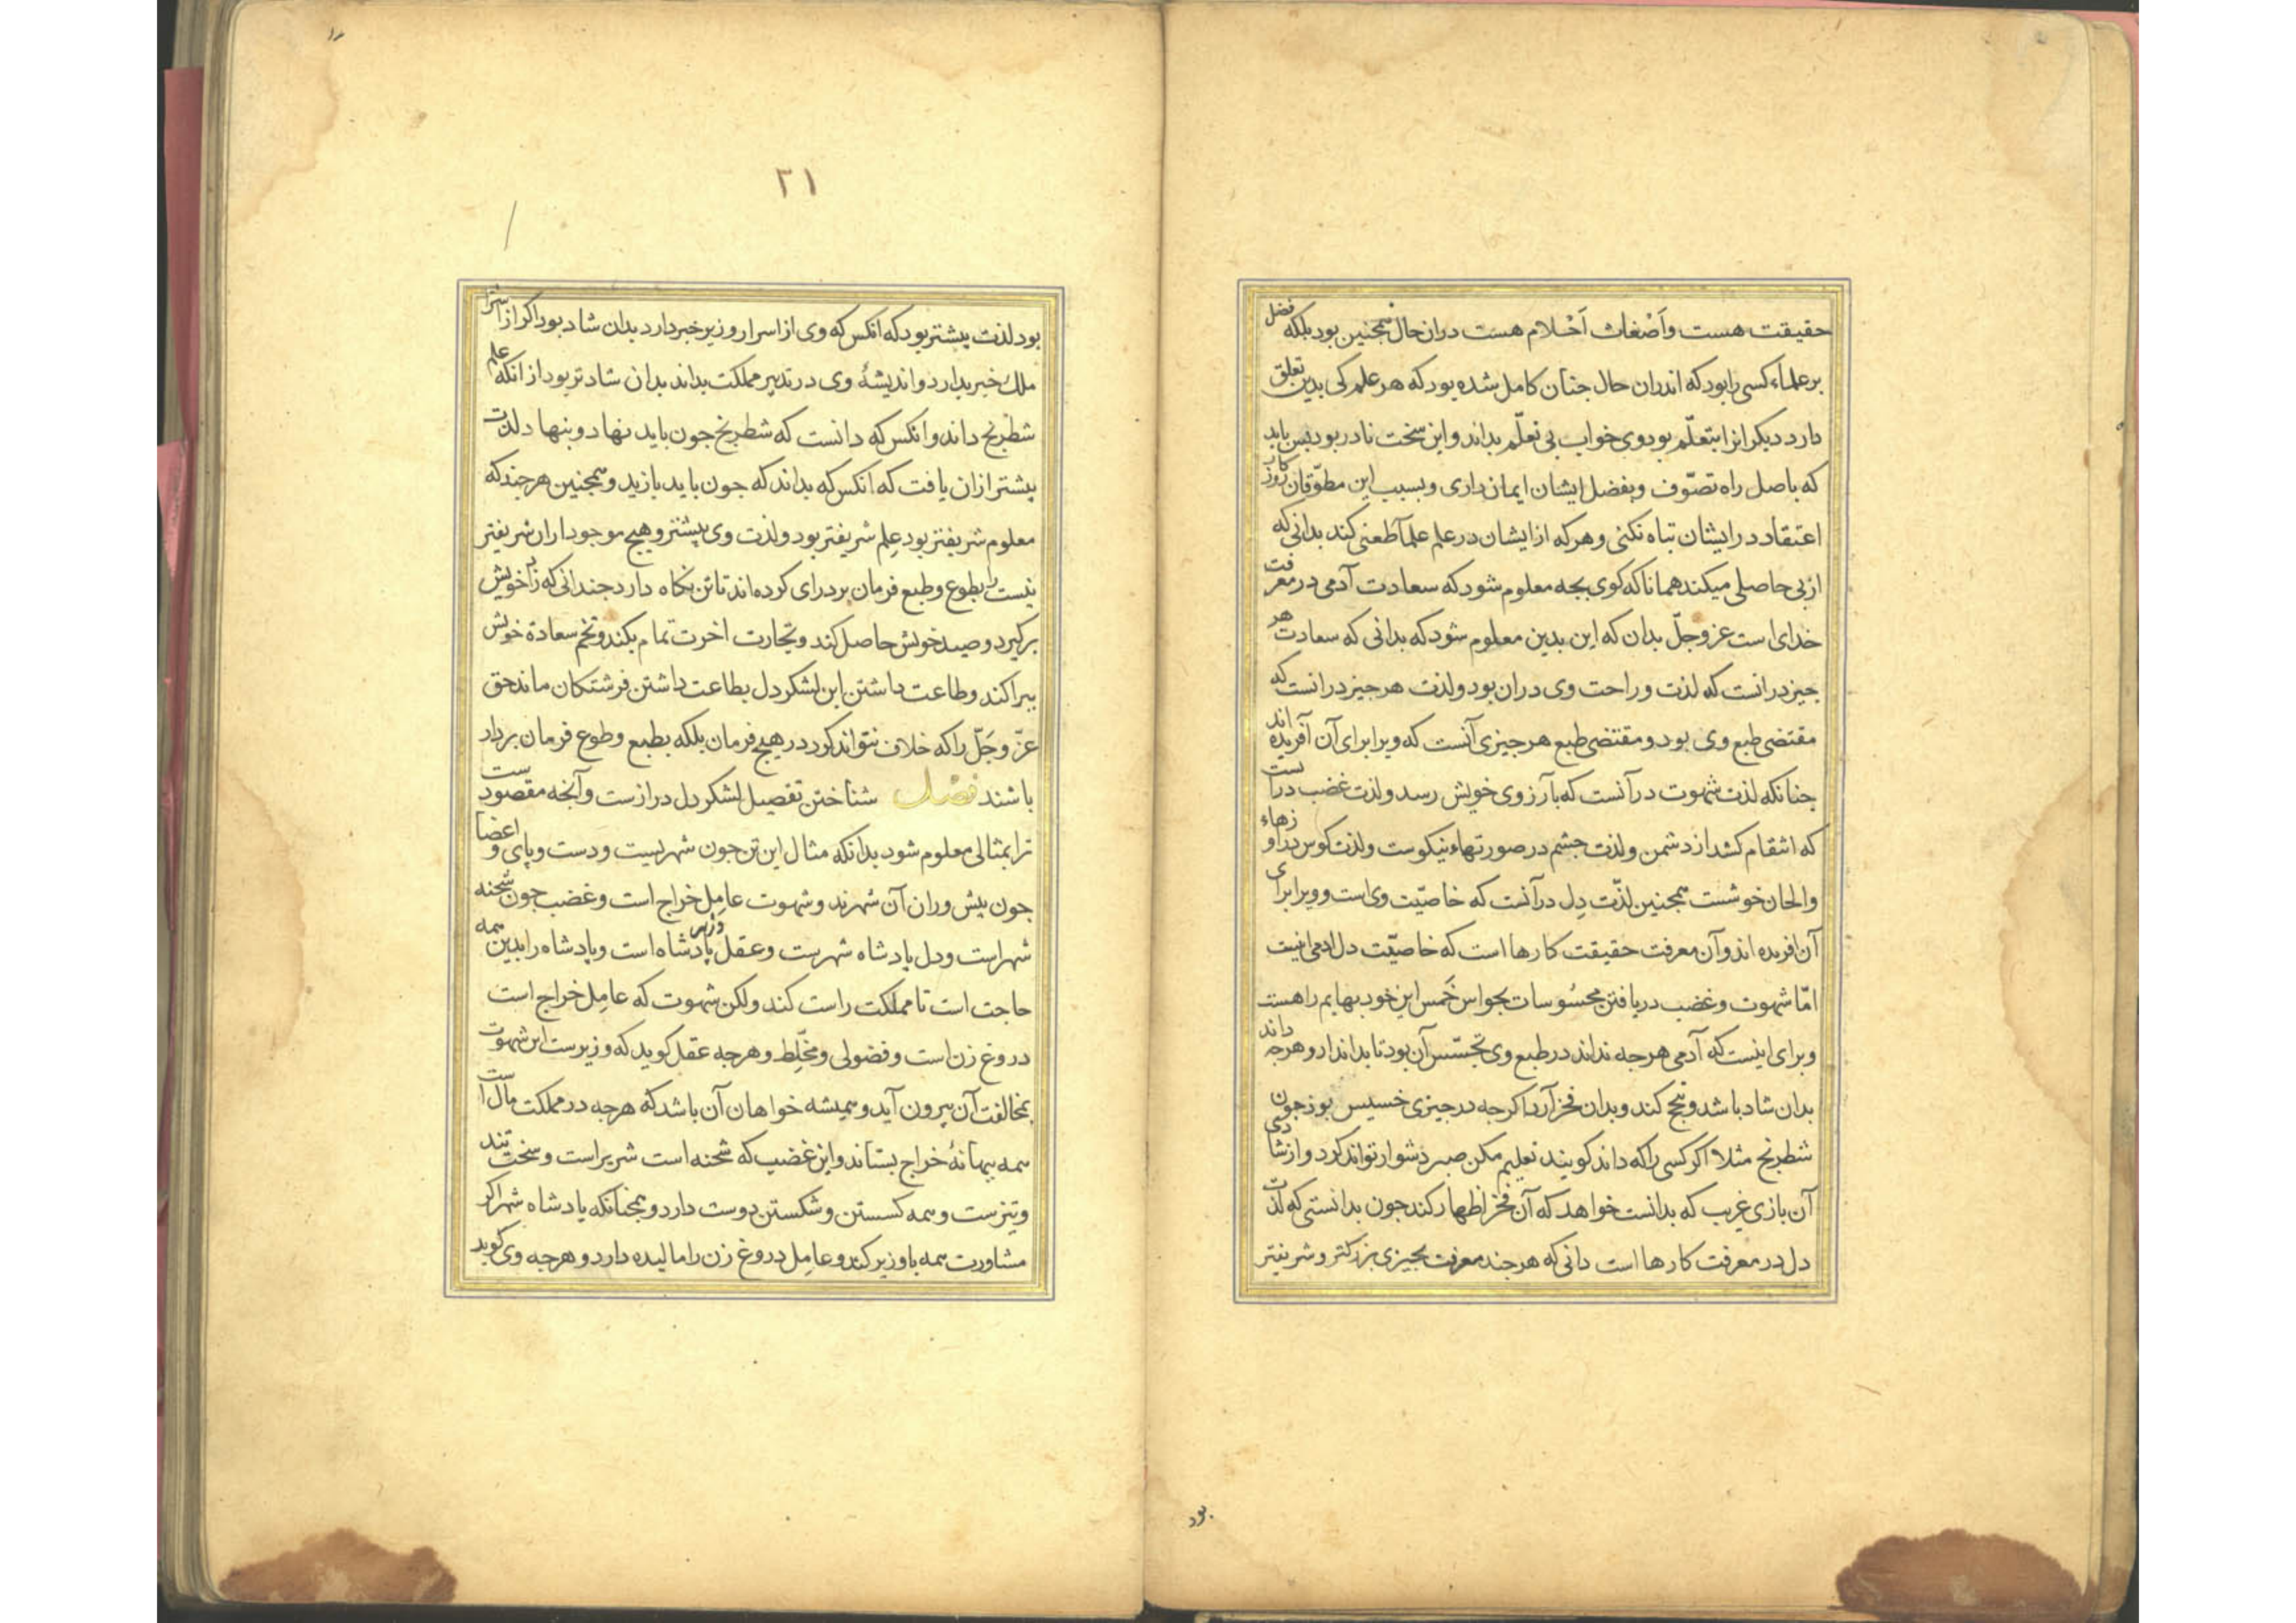 حقیقت هست واَضْغاث اَحْلام هست دران حال همجنین بود بلکه فضل
بر علماء کسی را بود که اندران حال جنان کامل شده بود که هر علم کی بدین تعلق
دارد دیکرانرا بتعلّم بود وی خواب بی تعلّم بداند و این سخت نادر بود بس باید
که باصل راه تصوّف و بفضل ایشان ایمان داری و بسبب این مطوّقان روزکار
اعتقاد در ایشان تباه نکنی و هرکه از ایشان در علم علما طعنی کند بدانی که
از بی حاصلی میکند همانا که کوی بجه معلوم شود که سعادت آدمی در معرفت
خدای است عز وجلّ بدان که این بدین معلوم شود که بدانی که سعادت هر
جیز درانست که لذت و راحت وی دران بود و لذت هر جیز درانست که
مقتضی طبع وی بود و مقتضی طبع هر جیزی آنست که ویرا برای آن آفریده اند
جنانکه لذت شهوت در آنست که بآرزوی خویش رسد و لذت غضب دراست
که انتقام کشد از دشمن و لذت جشم در صورتهاء نیکوست و لذت کوس در اوازهاء
والحان خوشست همجنین لذّت دِل در آنست که خاصیّت وی است و ویرا برای
آن افریده اند و آن معرفت حقیقت کارها است که خاصیّت دل ادمی اینست
امّا شهوت و غضب دریافتن محسُوسات بحواس خَمس این خود بهایم را هست
و برای اینست که آدمی هرجه نداند در طبع وی تجسّس آن بود تا بداند ار و هرجه داند
بدان شاد باشد و بنج کند و بدان فخر آرد اکرجه در جیزی خسیس بود جون
شطرنج مثلا اکر کسی را که داند کویند تعلیم مکن صبر دشوار تواند کرد و از شادی
آن بازی غریب که بدانست خواهد که آن فخر اظهار کند جون بدانستی که لذت
دل در معرفت کارها است دانی که هرجند معرفت بجیزی بزرکتر و شریفتر
بود
۲۱
بود لذت بیشتر بود که انکس که وی از اسرار وزیر خبر دارد بدان شاد بود اکر از اسرار
ملک خبر بدارد و اندیشهٔ وی در تدبیر مملکت بداند بدان شادتر بود از انکه علم
شطرنج داند و انکس که دانست که شطرنج جون باید نهاد و بنهاد لذت
بیشتر ازان یافت که انکس که بداند که جون باید بازید و همجنین هرجند که
معلوم شریفتر بود عِلم شریفتر بود و لذت وی بیشتر و هیج موجود اران شریفتر
نیست بطوع و طبع فرمان بردرای کرده اند تا تن نکاه دارد جندانی که زاد خویش
برکیرد و صید خویش حاصل کند و تجارت اخرت تمام بکند و تخم سعادة خویش
ببراکند و طاعت داشتن این لشکر دل بطاعت داشتن فرشتکان ماند حق
عزّ وجَلّ را که خلاف نتواند کرد در هیج فرمان بلکه بطبع و طوع فرمان بردار
باشند فصل شناختن تفصیل لشکر دل درازست و آنجه مقصودست
ترا بمثالی معلوم شود بدانکه مثال این تن جون شهریست و دست و پای و اعضا
جون بیش وران آن شهرند و شهوت عامِل خراج است و غضب جون شحنه
شهر است و دل پادشاه شهرست و عقل وزیر پادشاه است و پادشاه را بدین همه
حاجت است تا مملکت راست کند ولکن شهوت که عامِل خراج است
دروغ زن است و فضولی و مخلّط و هرجه عقل کوید که وزیرست این شهوت
بمخالفت آن بیرون آید و همیشه خواهان آن باشد که هرجه در مملکت مال است
همه ببهانهٔ خراج بستاند و این غضب که شحنه است شریر است و سخت تند
و تیزست و همه کسستن و شکستن دوست دارد و همجنانکه پادشاه شهر اکر
مشاورت همه با وزیر کند و عامِل دروغ زن را مالیده دارد و هرجه وی کوید